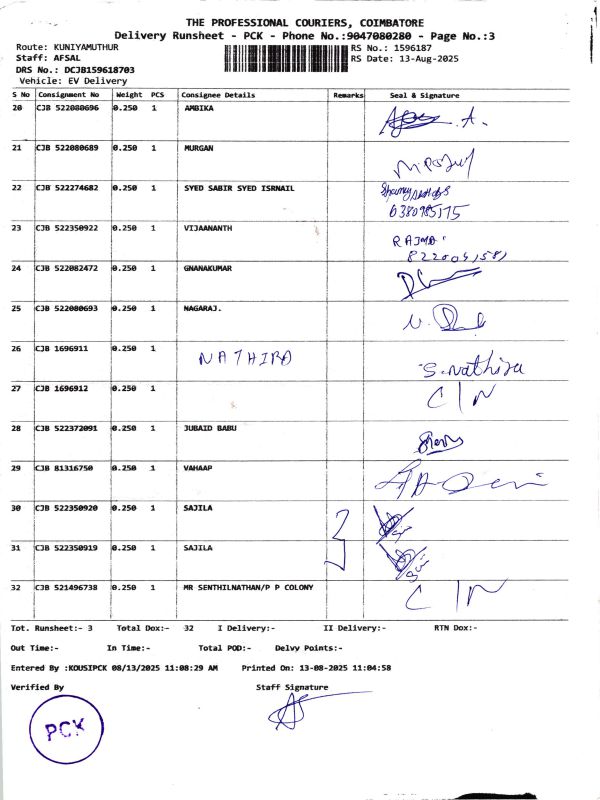 THE PROFESSIONAL COURIERS, COIMBATORE
Delivery Runsheet - PCK - Phone No.:9047080280 - Page No.:3
Route: KUNIYAMUTHUR
RS No.: 1596187
Staff: AFSAL
RS Date: 13-Aug-2025
DRS No.: DCJB159618703
Vehicle: EV Delivery
S No Consignment No Weight PCS Consignee Details Remarks Seal & Signature
20 CJB 522080696 0.250 1 AMBIKA
21 CJB 522080689 0.250 1 MURGAN
22 CJB 522274682 0.250 1 SYED SABIR SYED ISRNAIL
6380985175
23 CJB 522350922 0.250 1 VIJAANANTH
24 CJB 522082472 0.250 1 GNANAKUMAR
25 CJB 522080693 0.250 1 NAGARAJ.
26 CJB 1696911 0.250 1 NATHIRA S. Nathira
27 CJB 1696912 0.250 1 C/N
28 CJB 522372091 0.250 1 JUBAID BABU
29 CJB 81316750 0.250 1 VAHAAP
30 CJB 522350920 0.250 1 SAJILA
31 CJB 522350919 0.250 1 SAJILA
32 CJB 521496738 0.250 1 MR SENTHILNATHAN/P P COLONY C/N
Tot. Runsheet:- 3 Total Dox:- 32 I Delivery:- II Delivery:- RTN Dox:-
Out Time:- In Time:- Total POD:- Delvy Points:-
Entered By :KOUSIPCK 08/13/2025 11:08:29 AM Printed On: 13-08-2025 11:04:58
Verified By Staff Signature
PCK